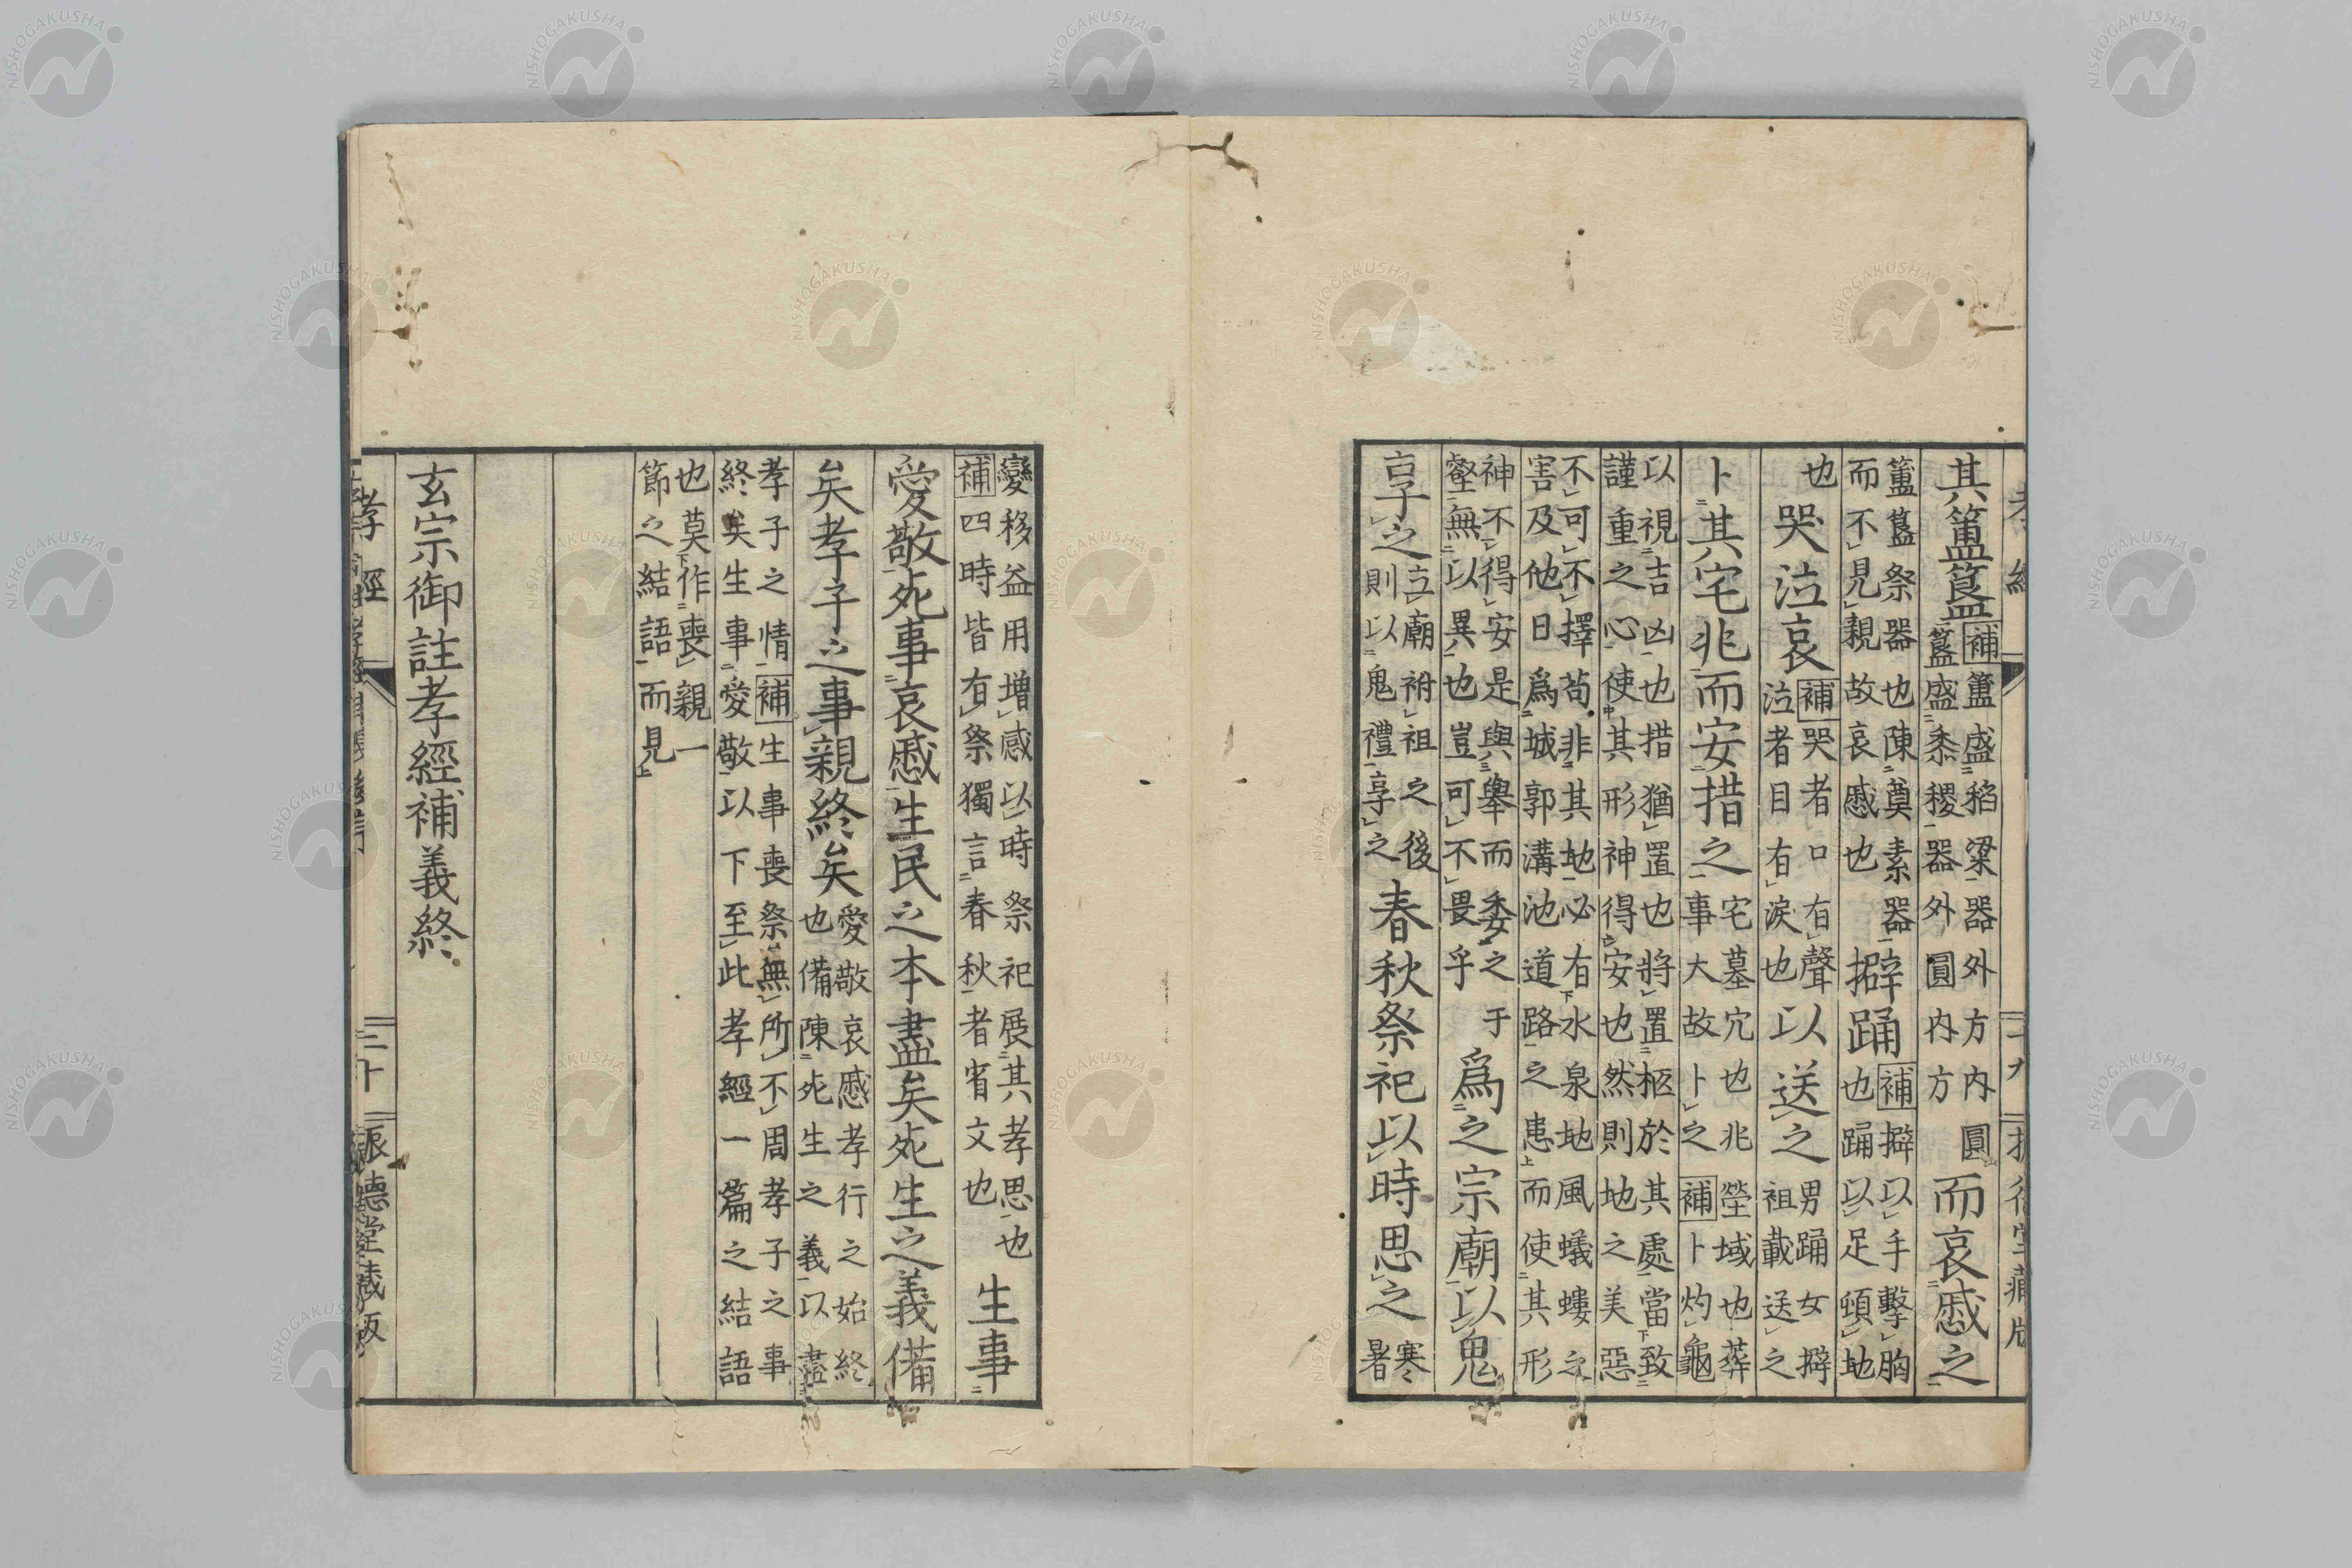 孝經 二十九
其簠簋補簠盛稻粱器外方内圓簋盛黍稷器外圓内方而哀慼之
簠簋祭器也陳奠素器而不見親故哀慼也擗踊補擗以手擊胸也踊以足頓地
也哭泣哀補哭者口有聲泣者目有淚也以送之男踊女擗祖載送之
卜其宅兆而安措之宅墓穴也兆塋域也葬事大故卜之補卜灼龜
以視吉凶也措猶置也將置柩於其處當致謹重之心使其形神得安也然則地之美惡
不可不擇苟非其地必有水泉地風蟻螻之害及他日爲城郭溝池道路之患而使其形
神不得安是與舉而委之于壑無以異也豈可不畏乎爲之宗廟以鬼
享之立廟祔祖之後則以鬼禮享之春秋祭祀以時思之寒暑
變移益用增感以時祭祀展其孝思也補四時皆有祭獨言春秋者省文也生事
愛敬死事哀慼生民之本盡矣死生之義備
矣孝子之事親終矣愛敬哀慼孝行之始終也備陳死生之義以盡
孝子之情補生事喪祭無所不周孝子之事終矣生事愛敬以下至此孝經一篇之結語
也莫作喪親一節之結語而見
玄宗御註孝經補義終
孝經 三十 振德堂藏版